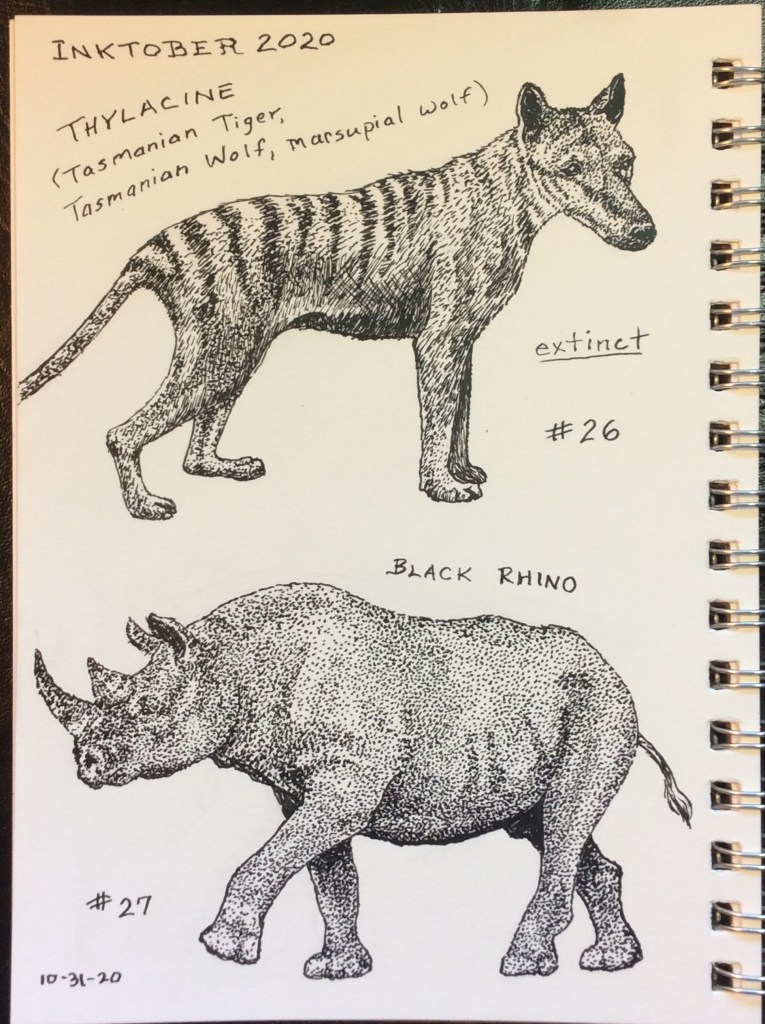 INKTOBER 2020
THYLACINE
(Tasmanian Tiger,
Tasmanian Wolf, marsupial wolf)
extinct
#26
BLACK RHINO
#27
10-31-20